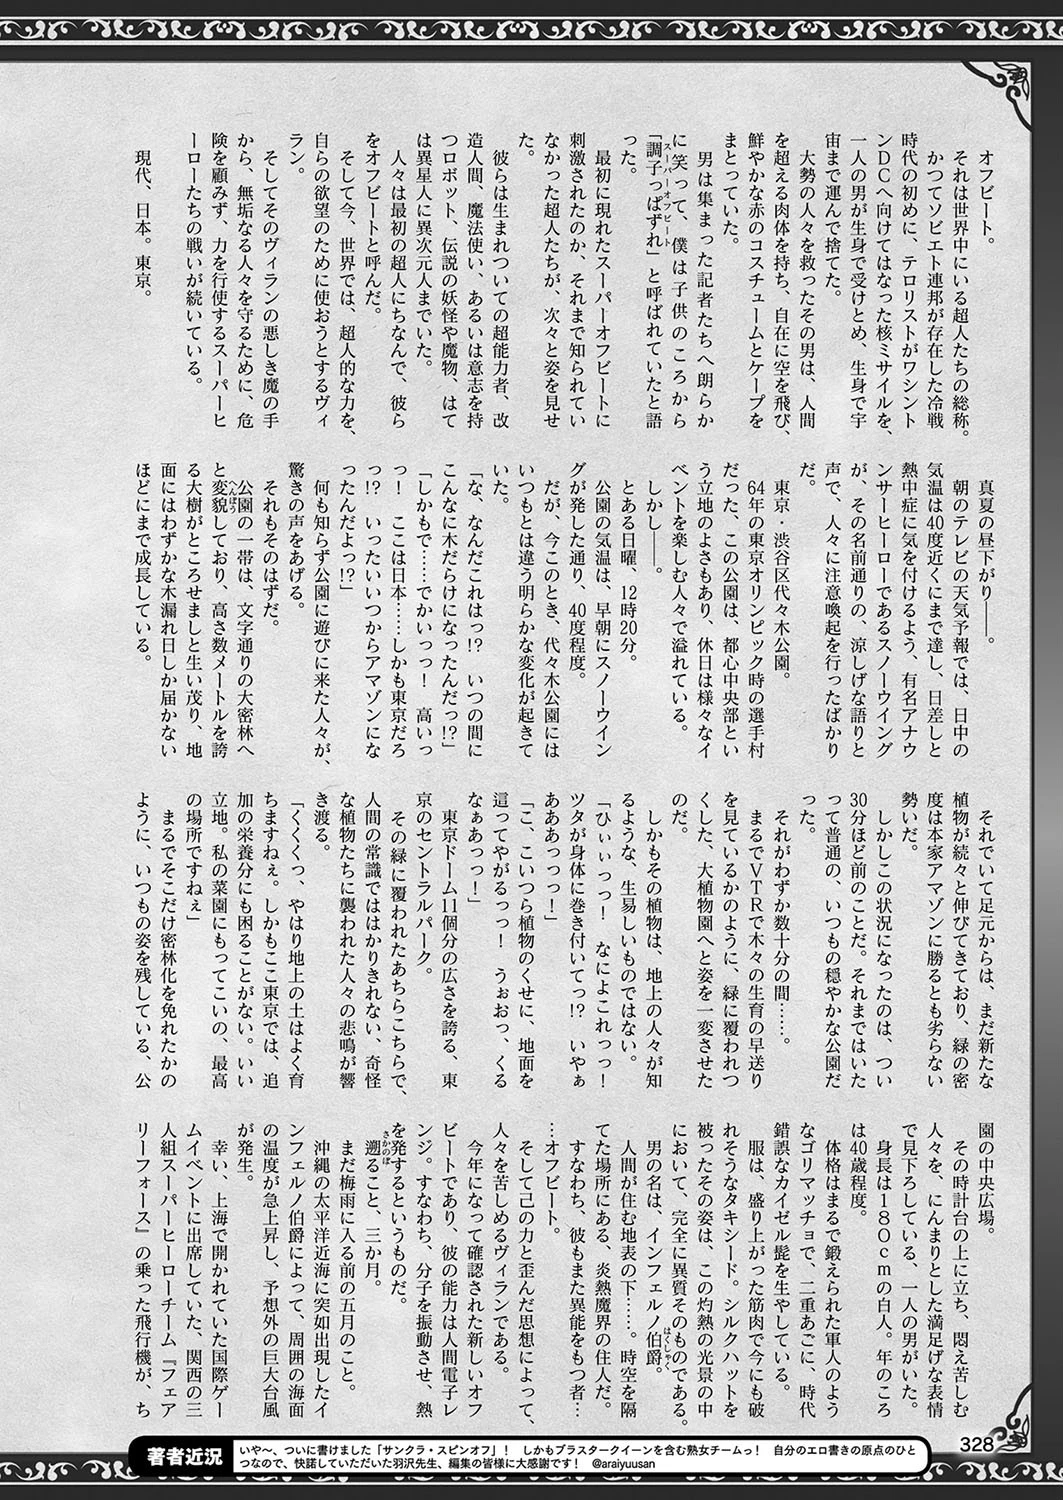 オフビート。
それは世界中にいる超人たちの総称。
かつてソビエト連邦が存在した冷戦
時代の初めに、テロリストがワシント
ンDCへ向けてはなった核ミサイルを、
一人の男が生身で受けとめ、生身で宇
宙まで運んで捨てた。
大勢の人々を救ったその男は、人間
を超える肉体を持ち、自在に空を飛び、
鮮やかな赤のコスチュームとケープを
まとっていた。
男は集まった記者たちへ朗らか
に笑って、僕は子供のころから
「調子っぱずれ」と呼ばれていたと語
スーパーオフビート
った。
最初に現れたスーパーオフビートに
刺激されたのか、それまで知られてい
なかった超人たちが、次々と姿を見せ
た。
彼らは生まれついての超能力者、改
造人間、魔法使い、あるいは意志を持
つロボット、伝説の妖怪や魔物、はて
は異星人に異次元人までいた。
人々は最初の超人にちなんで、彼ら
をオフビートと呼んだ。
そして今、世界では、超人的な力を、
自らの欲望のために使おうとするヴィ
ラン。
そしてそのヴィランの悪しき魔の手
から、無垢なる人々を守るために、危
険を顧みず、力を行使するスーパーヒ
ーローたちの戦いが続いている。
現代、日本。東京。
真夏の昼下がり――。
朝のテレビの天気予報では、日中の
気温は40度近くにまで達し、日差しと
熱中症に気を付けるよう、有名アナウ
ンサーヒーローであるスノーウイング
が、その名前通りの、涼しげな語りと
声で、人々に注意喚起を行ったばかり
だ。
東京・渋谷区代々木公園。
64年の東京オリンピック時の選手村
だった、この公園は、都心中央部とい
う立地のよさもあり、休日は様々なイ
ベントを楽しむ人々で溢れている。
しかし――。
とある日曜、12時20分。
公園の気温は、早朝にスノーウイン
グが発した通り、40度程度。
だが、今このとき、代々木公園には
いつもとは違う明らかな変化が起きて
いた。
「な、なんだこれはっ!?　いつの間に
こんなに木だらけになったんだっ!?」
「しかもで……でかいっっ！　高いっ
っ！　ここは日本……しかも東京だろ
っ!?　いったいいつからアマゾンにな
ったんだよっ!?」
何も知らず公園に遊びに来た人々が、
驚きの声をあげる。
それもそのはずだ。
公園の一帯は、文字通りの大密林へ
と変貌しており、高さ数メートルを誇
へんぼう
る大樹がところせましと生い茂り、地
面にはわずかな木漏れ日しか届かない
ほどにまで成長している。
それでいて足元からは、まだ新たな
植物が続々と伸びてきており、緑の密
度は本家アマゾンに勝るとも劣らない
勢いだ。
しかしこの状況になったのは、つい
30分ほど前のことだ。それまではいた
って普通の、いつもの穏やかな公園だ
った。
それがわずか数十分の間……。
まるでVTRで木々の生育の早送り
を見ているかのように、緑に覆われつ
くした、大植物園へと姿を一変させた
のだ。
しかもその植物は、地上の人々が知
るような、生易しいものではない。
「ひぃぃっっ！　なによこれっっ！
ツタが身体に巻き付いてっ!?　いやぁ
あああっっっ！」
「こ、こいつら植物のくせに、地面を
這ってやがるっっ！　うぉおっ、くる
なぁあっっ！」
東京ドーム11個分の広さを誇る、東
京のセントラルパーク。
その緑に覆われたあちらこちらで、
人間の常識でははかりきれない、奇怪
な植物たちに襲われた人々の悲鳴が響
き渡る。
「くくくっ、やはり地上の土はよく育
ちますねぇ。しかもここ東京では、追
加の栄養分にも困ることがない。いい
立地。私の菜園にもってこいの、最高
の場所ですねぇ」
まるでそこだけ密林化を免れたかの
ように、いつもの姿を残している、公
園の中央広場。
その時計台の上に立ち、悶え苦しむ
人々を、にんまりとした満足げな表情
で見下ろしている、一人の男がいた。
身長は180cmの白人。年のころ
は40歳程度。
体格はまるで鍛えられた軍人のよう
なゴリマッチョで、二重あごに、時代
錯誤なカイゼル髭を生やしている。
服は、盛り上がった筋肉で今にも破
れそうなタキシード。シルクハットを
被ったその姿は、この灼熱の光景の中
において、完全に異質そのものである。
男の名は、インフェルノ伯爵。
はくしゃく
人間が住む地表の下……。時空を隔
てた場所にある、炎熱魔界の住人だ。
すなわち、彼もまた異能をもつ者…
…オフビート。
そして己の力と歪んだ思想によって、
人々を苦しめるヴィランである。
今年になって確認された新しいオフ
ビートであり、彼の能力は人間電子レ
ンジ。すなわち、分子を振動させ、熱
を発するというものだ。
遡ること、三か月。
さかのぼ
まだ梅雨に入る前の五月のこと。
沖縄の太平洋近海に突如出現したイ
ンフェルノ伯爵によって、周囲の海面
の温度が急上昇し、予想外の巨大台風
が発生。
幸い、上海で開かれていた国際ゲー
ムイベントに出席していた、関西の三
人組スーパーヒーローチーム『フェア
リーフォース』の乗った飛行機が、ち
328
著者近況
いや〜、ついに書けました「サンクラ・スピンオフ」！　しかもブラスタークイーンを含む熟女チームっ！　自分のエロ書きの原点のひと
つなので、快諾していただいた羽沢先生、編集の皆様に大感謝です！　@araiyuusan